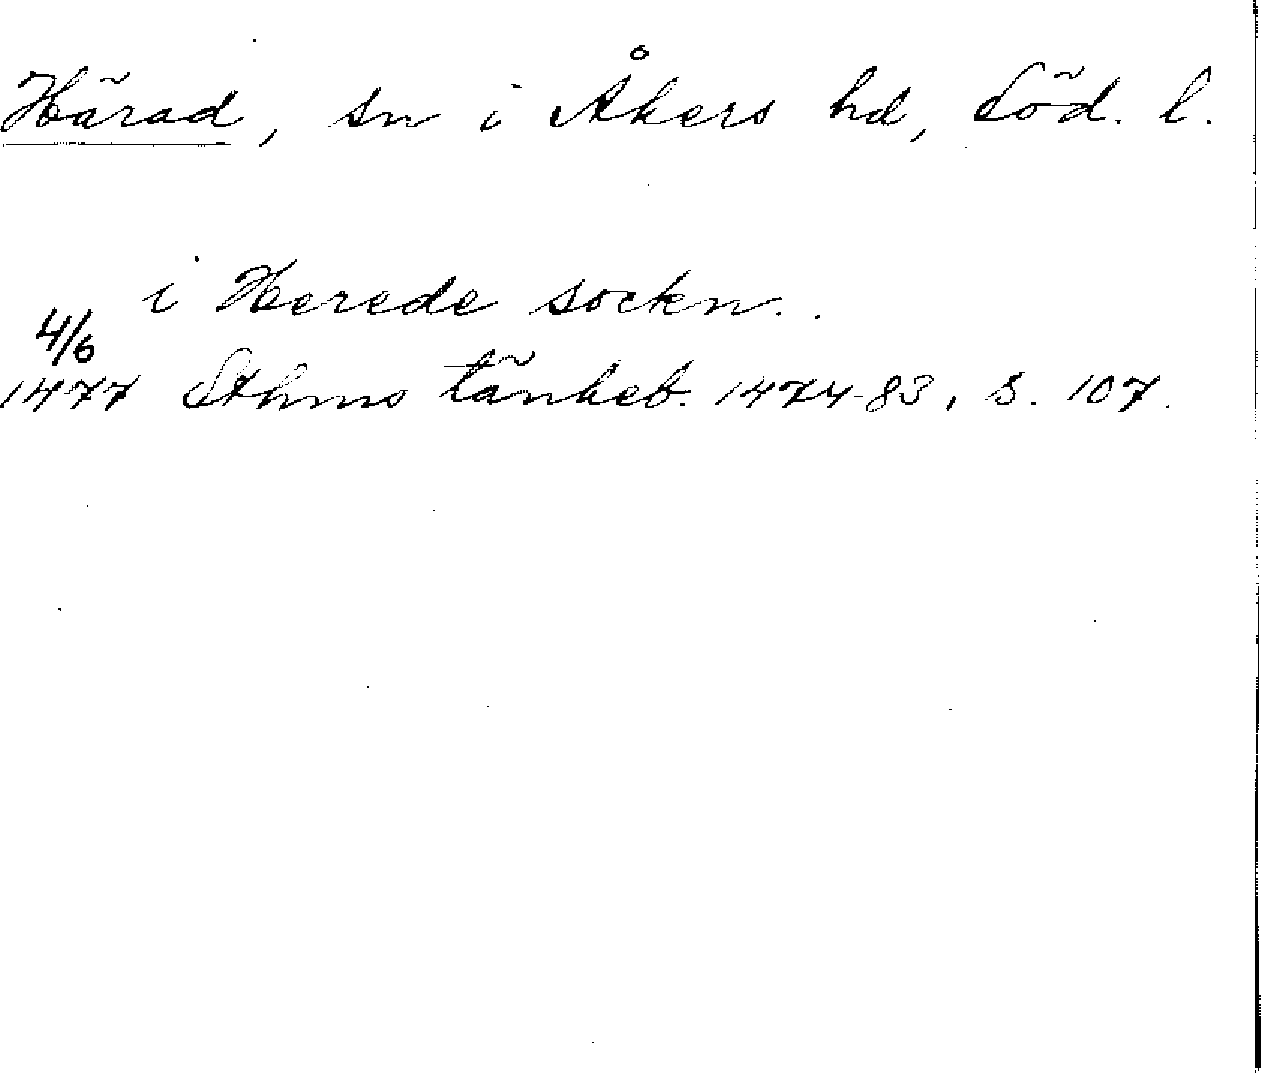 Härad, sn i Åkers hd, Söd. l.
i Herede sockn..
4/6
1477 Sthms tänkeb. 1474-83, s. 107.